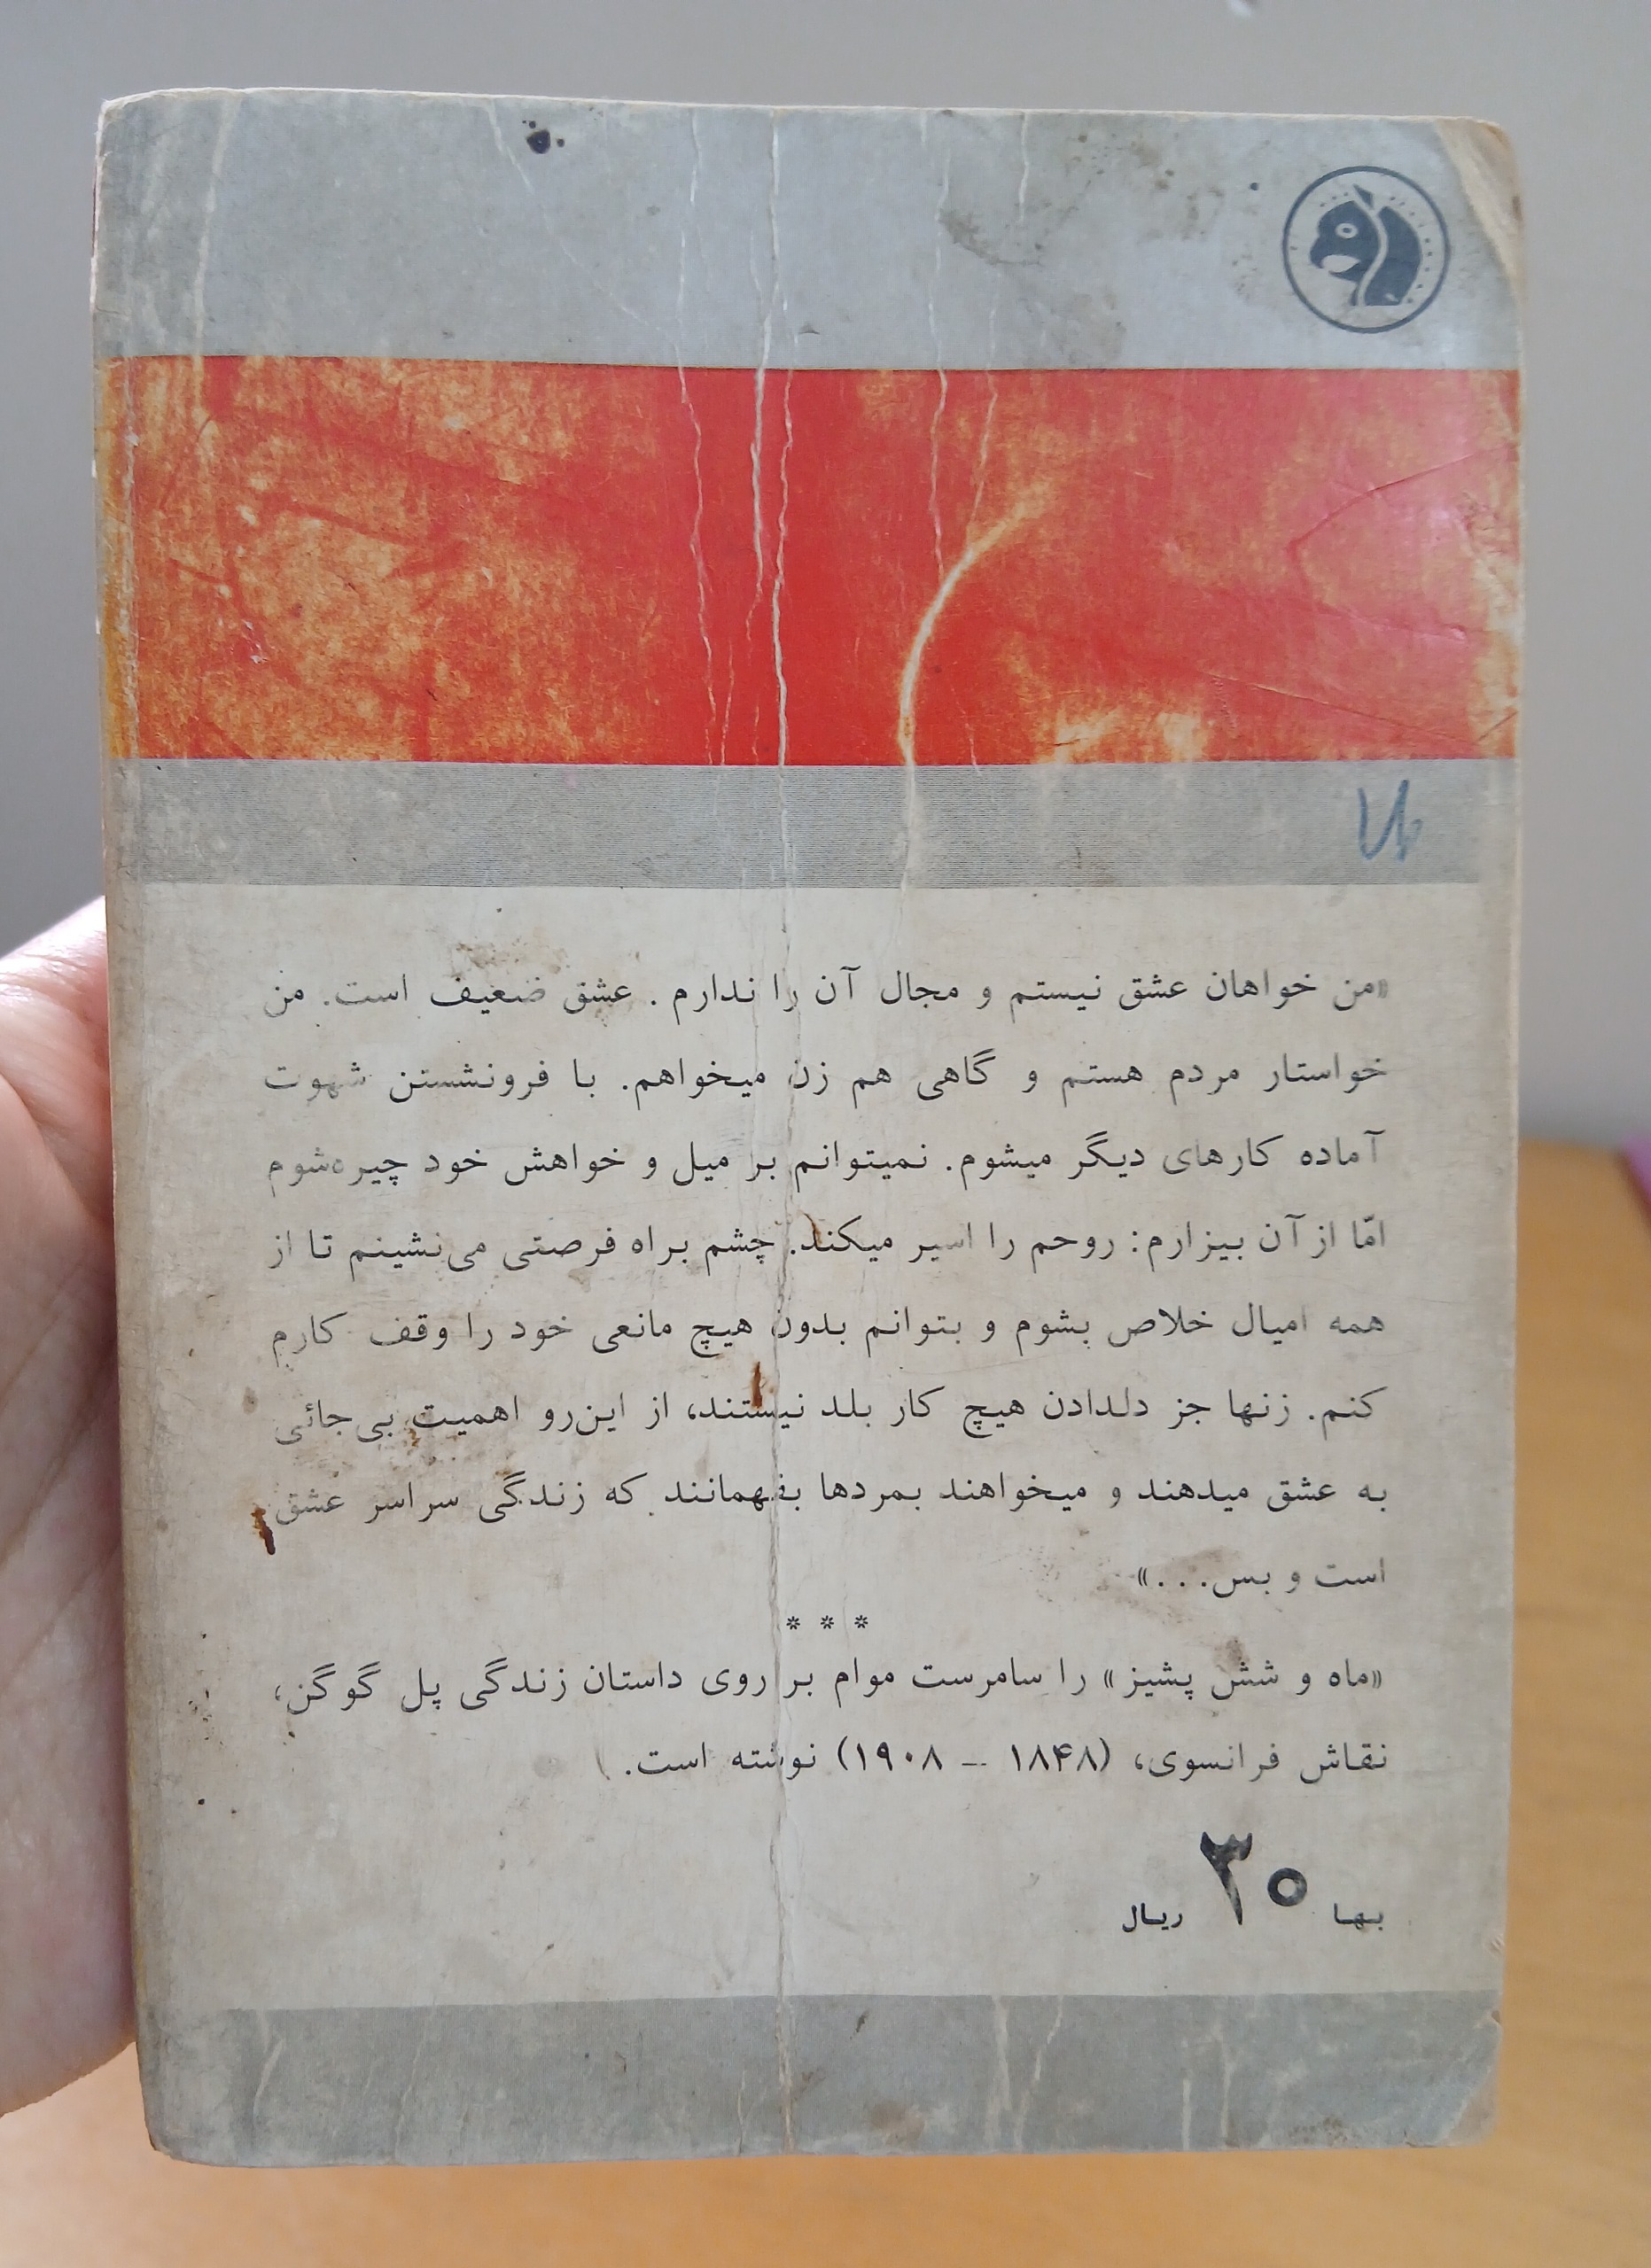 «من خواهان عشق نیستم و مجال آن را ندارم. عشق ضعیف است. من
خواستار مردم هستم و گاهی هم زن میخواهم. با فرونشستن شهوت
آماده کارهای دیگر میشوم. نمیتوانم بر میل و خواهش خود چیره‌شوم
امّا از آن بیزارم: روحم را اسیر میکند. چشم براه فرصتی می‌نشینم تا از
همه امیال خلاص بشوم و بتوانم بدون هیچ مانعی خود را وقف کارم
کنم. زنها جز دلدادن هیچ کار بلد نیستند، از این‌رو اهمیت بی‌جائی
به عشق میدهند و میخواهند بمردها بفهمانند که زندگی سراسر عشق
است و بس...»
* * *
«ماه و شش پشیز» را سامرست موام بر روی داستان زندگی پل گوگن،
نقاش فرانسوی، (۱۸۴۸ – ۱۹۰۸) نوشته است.
بها ۳۰ ریال